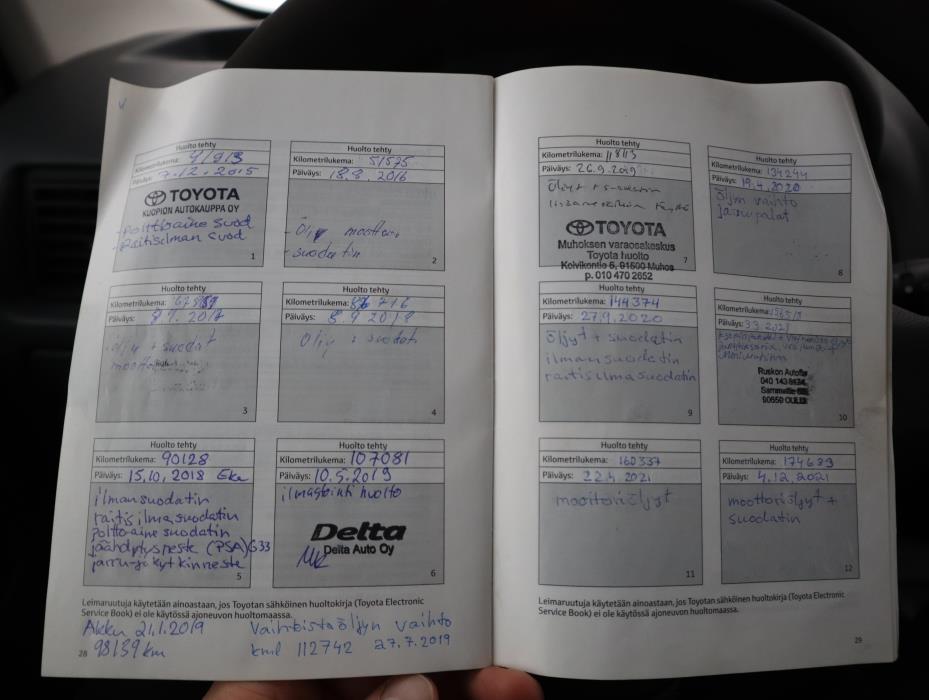 Huolto tehty
Kilometrilukema:
Päiväys: 7.12.2015
TOYOTA
KUOPION AUTOKAUPPA OY
- Polttoaine suod
- Raitisilman suod
1
Huolto tehty
Kilometrilukema: 51575
Päiväys: 18.8.2016
- Öljy moottori
- suodatin
2
Huolto tehty
Kilometrilukema:
Päiväys: 8.9.2017
Öljy + suodat
moottori
3
Huolto tehty
Kilometrilukema:
Päiväys:
Öljy + suodati
4
Huolto tehty
Kilometrilukema: 90128
Päiväys: 15.10.2018 Eka
ilmansuodatin
raitis ilmasuodatin
poltto-aine suodatin
jäähdytysneste (PSA) G33
jarru- ja kytkinneste
5
Huolto tehty
Kilometrilukema: 107081
Päiväys: 10.5.2019
ilmastointi huolto
Delta
Delta Auto Oy
6
Leimaruutuja käytetään ainoastaan, jos Toyotan sähköinen huoltokirja (Toyota Electronic
Service Book) ei ole käytössä ajoneuvon huoltomaassa.
Akku 21.1.2019
98139 km
Vaihteistoöljyn vaihto
kml 112742 27.7.2019
28
Huolto tehty
Kilometrilukema:
Päiväys: 26.9.2019
Öljyt + suodatin
TOYOTA
Muhoksen varaosakeskus
Toyota huolto
Koivikontie 5, 91500 Muhos
p. 010 470 2652
7
Huolto tehty
Kilometrilukema: 134244
Päiväys: 19.4.2020
Öljyn vaihto
jarrupalat
8
Huolto tehty
Kilometrilukema: 144374
Päiväys: 27.9.2020
öljyt + suodatin
ilmansuodatin
raitisilmasuodatin
9
Huolto tehty
Kilometrilukema:
Päiväys: 3.3.2021
Ruskon Autofix
040 143
90650 OULU
10
Huolto tehty
Kilometrilukema: 160337
Päiväys: 22.4.2021
moottoriöljyt
11
Huolto tehty
Kilometrilukema: 174683
Päiväys: 4.12.2021
moottoriöljyt +
suodatin
12
Leimaruutuja käytetään ainoastaan, jos Toyotan sähköinen huoltokirja (Toyota Electronic
Service Book) ei ole käytössä ajoneuvon huoltomaassa.
29